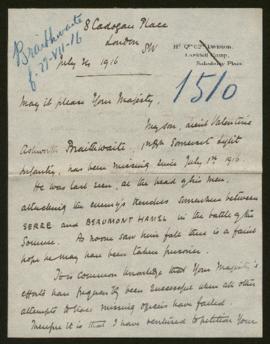 Braithwaite
f. 27-VII-16
8 Cadogan Place
London
SW
July 24 1916
1510
May it please Your Majesty,
My son, Lieut Valentine
Ashworth Braithwaite, 1st Batt Somerset Light
Infantry, has been missing since July 1st 1916
He was last seen, at the head of his men,
attacking the enemy's trenches somewhere between
SERRE and BEAUMONT HAMEL in the battle of the
Somme. As no one saw him fall there is a faint
hope he may have been taken prisoner.
It is common knowledge that Your Majesty's
efforts have frequently been successful when all other
attempts to trace missing officers have failed.
Therefore it is that I have ventured to petition Your